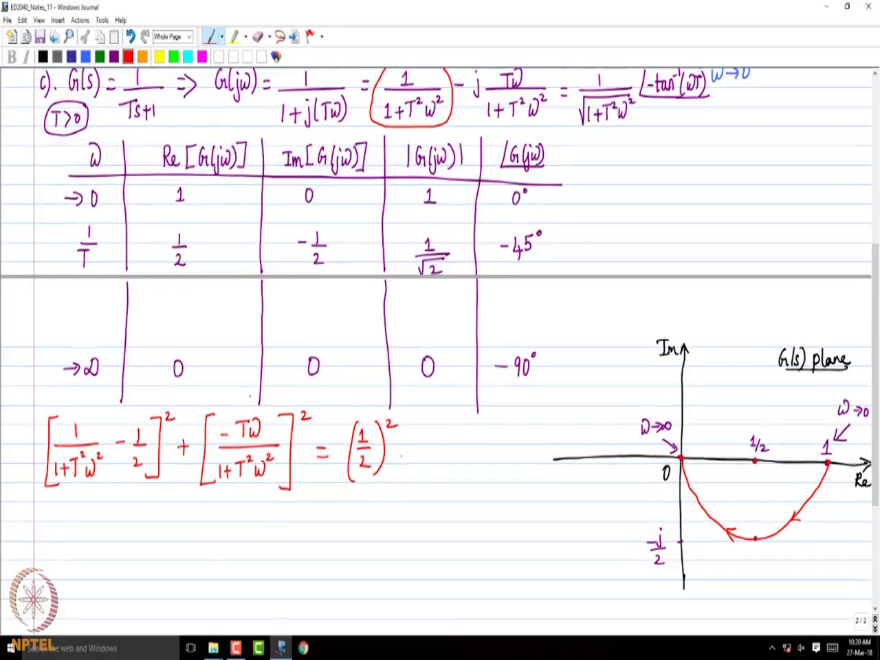 ED2040_Notes_11 - Windows Journal
File Edit View Insert Actions Tools Help
Whole Page
B I
c). G(s) = 1/(Ts+1) => G(jω) = 1/(1+j(Tω)) = 1/(1+T²ω²) - j Tω/(1+T²ω²) = 1/√(1+T²ω²) ∠-tan⁻¹(ωT) ω→0
T>0
ω | Re[G(jω)] | Im[G(jω)] | |G(jω)| | ∠G(jω)
→0 | 1 | 0 | 1 | 0°
1/T | 1/2 | -1/2 | 1/√2 | -45°
→∞ | 0 | 0 | 0 | -90°
[1/(1+T²ω²) - 1/2]² + [-Tω/(1+T²ω²)]² = (1/2)².
Im
G(s) plane
ω→∞
ω→0
1/2
1
0
Re
-j/2
2 / 2
NPTEL
the web and Windows
10:20 AM
27-Mar-18